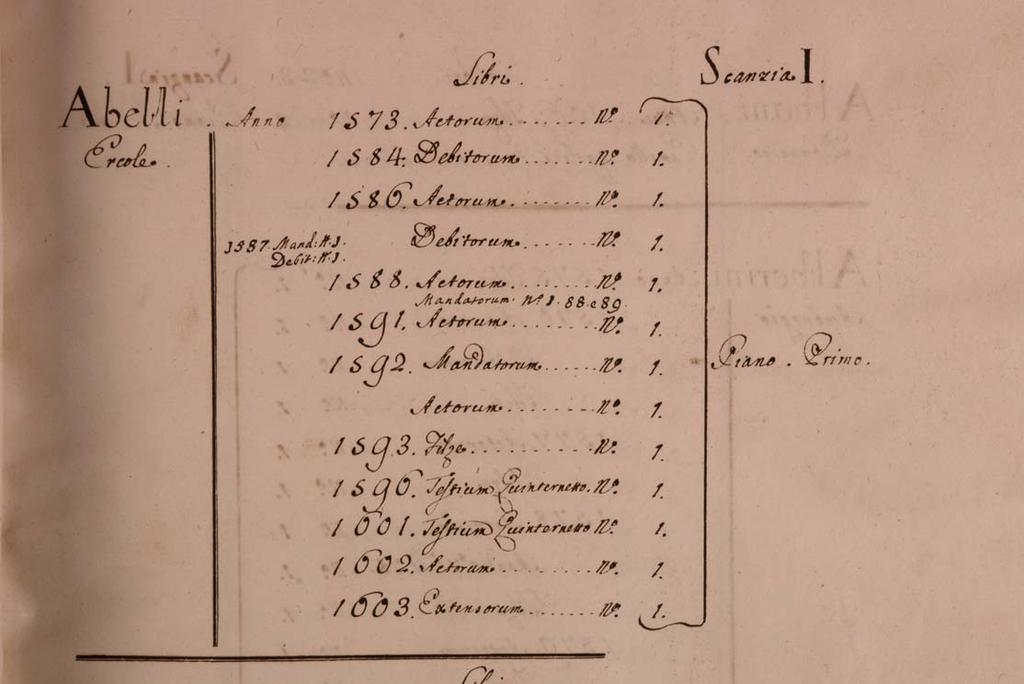 Libri.
Scanzia I.
Abelli. Anno 1573. Actorum........ N.º 1.
Ercole. 1584. Debitorum....... N.º 1.
1586. Actorum........ N.º 1.
Debitorum....... N.º 1.
1587. Mand: N.1.
Debit: N.1.
1588. Actorum........ N.º 1.
Mandatorum. Nº 1. 88 e 89.
1591. Actorum........ N.º 1.
1592. Mandatorum...... N.º 1.
Piano. Primo.
Actorum........ N.º 1.
1593. Filze............ N.º 1.
1596. Testium Quinternetto. N.º 1.
1601. Testium Quinternetto N.º 1.
1602. Actorum........ N.º 1.
1603. Extensorum...... N.º 1.
Libri